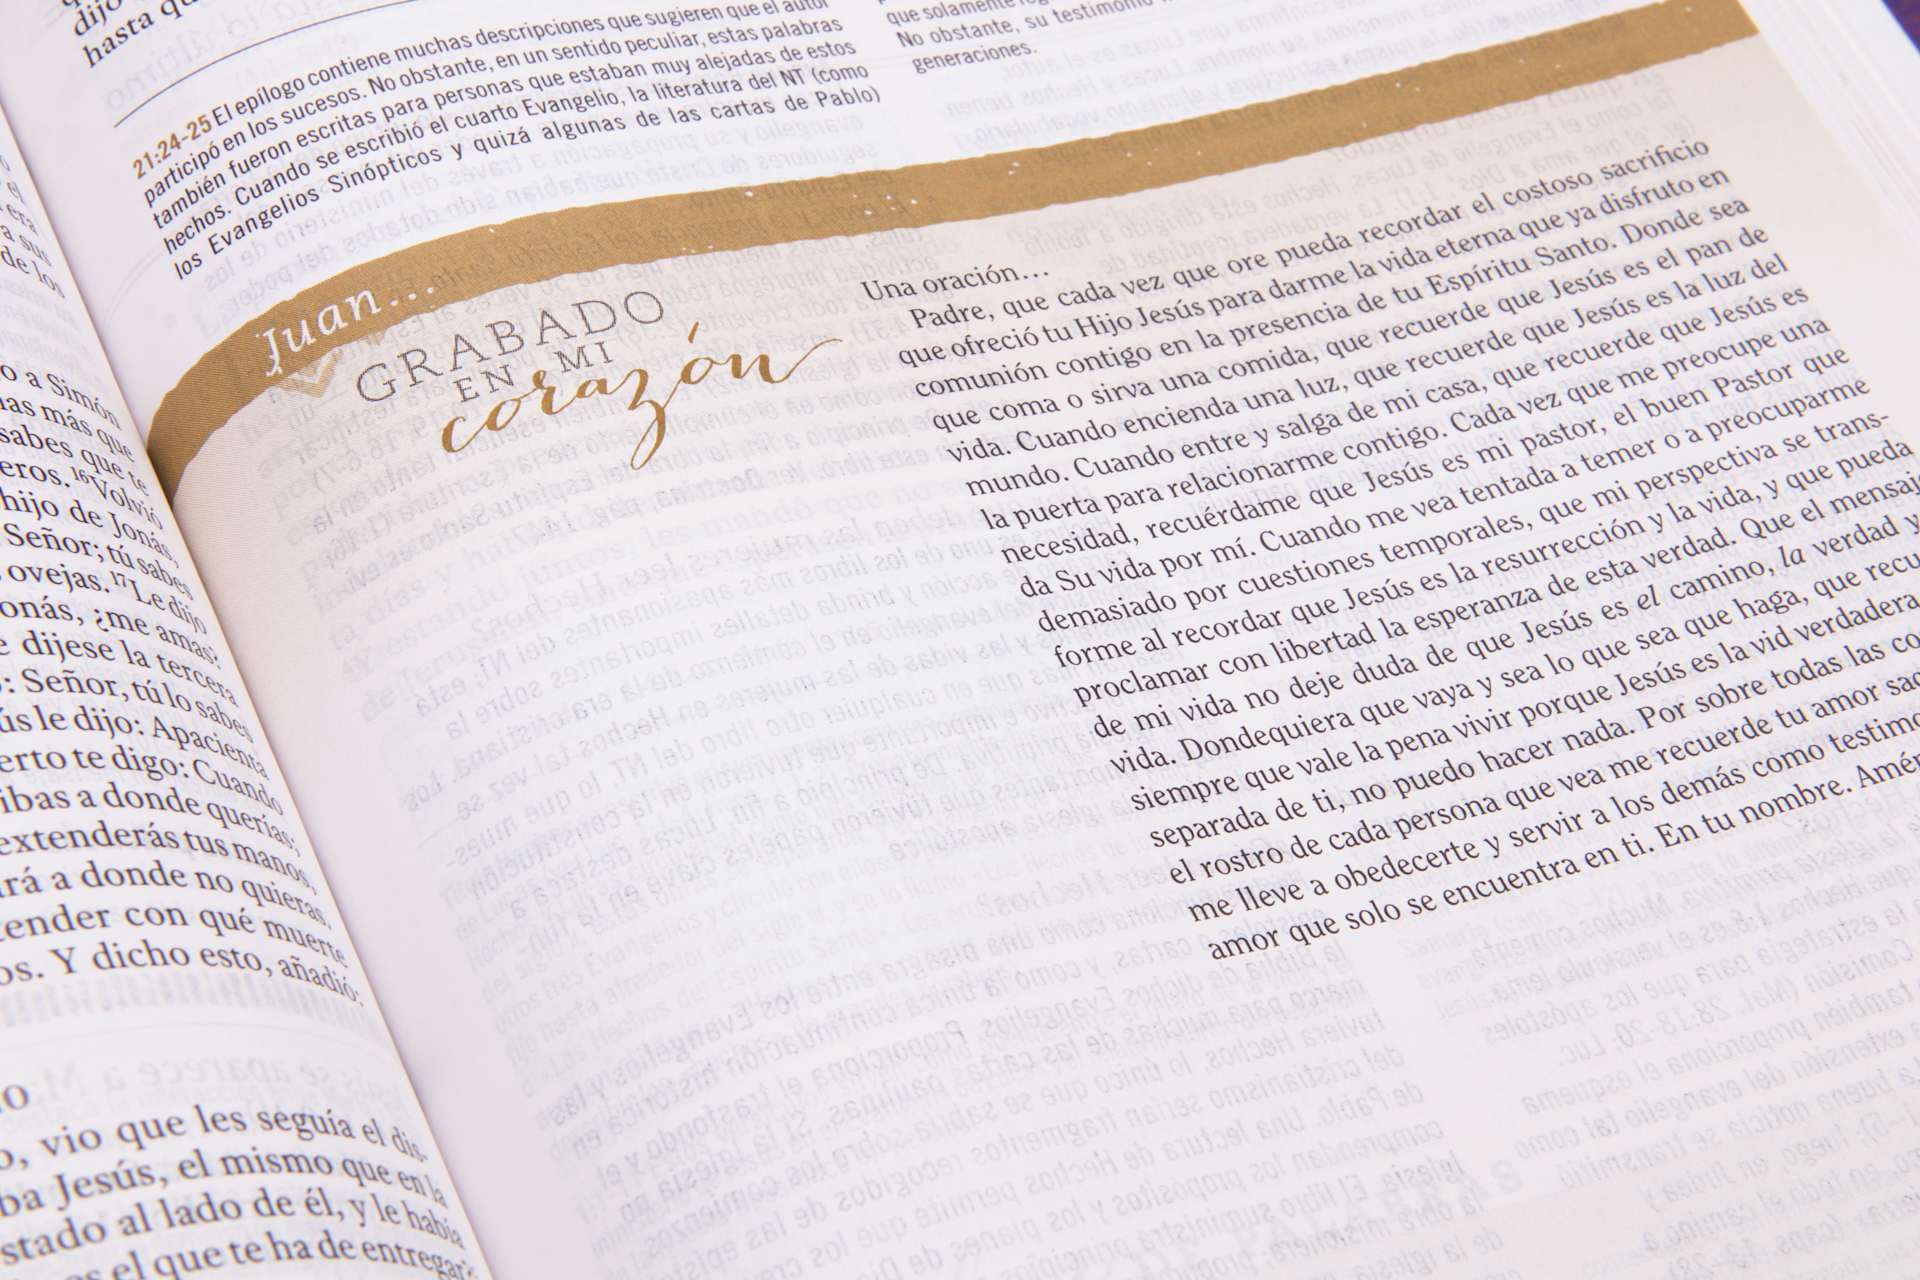 dijo
hasta qu
o a Simón
nas más que
sabes que te
eros. 16 Volvió
hijo de Jonás,
Señor; tú sabes
ovejas. 17 Le dijo
onás, ¿me amas?
e dijese la tercera
: Señor, tú lo sabes
ús le dijo: Apacienta
erto te digo: Cuando
ibas a donde querías;
extenderás tus manos,
ará a donde no quieras.
tender con qué muerte
os. Y dicho esto, añadió:
o, vio que les seguía el dis-
ba Jesús, el mismo que en la
stado al lado de él, y le había
es el que te ha de entregar?
21:24-25 El epílogo contiene muchas descripciones que sugieren que el autor
participó en los sucesos. No obstante, en un sentido peculiar, estas palabras
también fueron escritas para personas que estaban muy alejadas de estos
hechos. Cuando se escribió el cuarto Evangelio, la literatura del NT (como
los Evangelios Sinópticos y quizá algunas de las cartas de Pablo)
que solamente
No obstante, su testimonio
generaciones.
Juan...
GRABADO
EN MI
corazón
Una oración...
Padre, que cada vez que ore pueda recordar el costoso sacrificio
que ofreció tu Hijo Jesús para darme la vida eterna que ya disfruto en
comunión contigo en la presencia de tu Espíritu Santo. Donde sea
que coma o sirva una comida, que recuerde que Jesús es el pan de
vida. Cuando encienda una luz, que recuerde que Jesús es la luz del
mundo. Cuando entre y salga de mi casa, que recuerde que Jesús es
la puerta para relacionarme contigo. Cada vez que me preocupe una
necesidad, recuérdame que Jesús es mi pastor, el buen Pastor que
da Su vida por mí. Cuando me vea tentada a temer o a preocuparme
demasiado por cuestiones temporales, que mi perspectiva se trans-
forme al recordar que Jesús es la resurrección y la vida, y que pueda
proclamar con libertad la esperanza de esta verdad. Que el mensaj
de mi vida no deje duda de que Jesús es el camino, la verdad y
vida. Dondequiera que vaya y sea lo que sea que haga, que recu
siempre que vale la pena vivir porque Jesús es la vid verdadera
separada de ti, no puedo hacer nada. Por sobre todas las co
el rostro de cada persona que vea me recuerde tu amor sac
me lleve a obedecerte y servir a los demás como testimo
amor que solo se encuentra en ti. En tu nombre. Amén